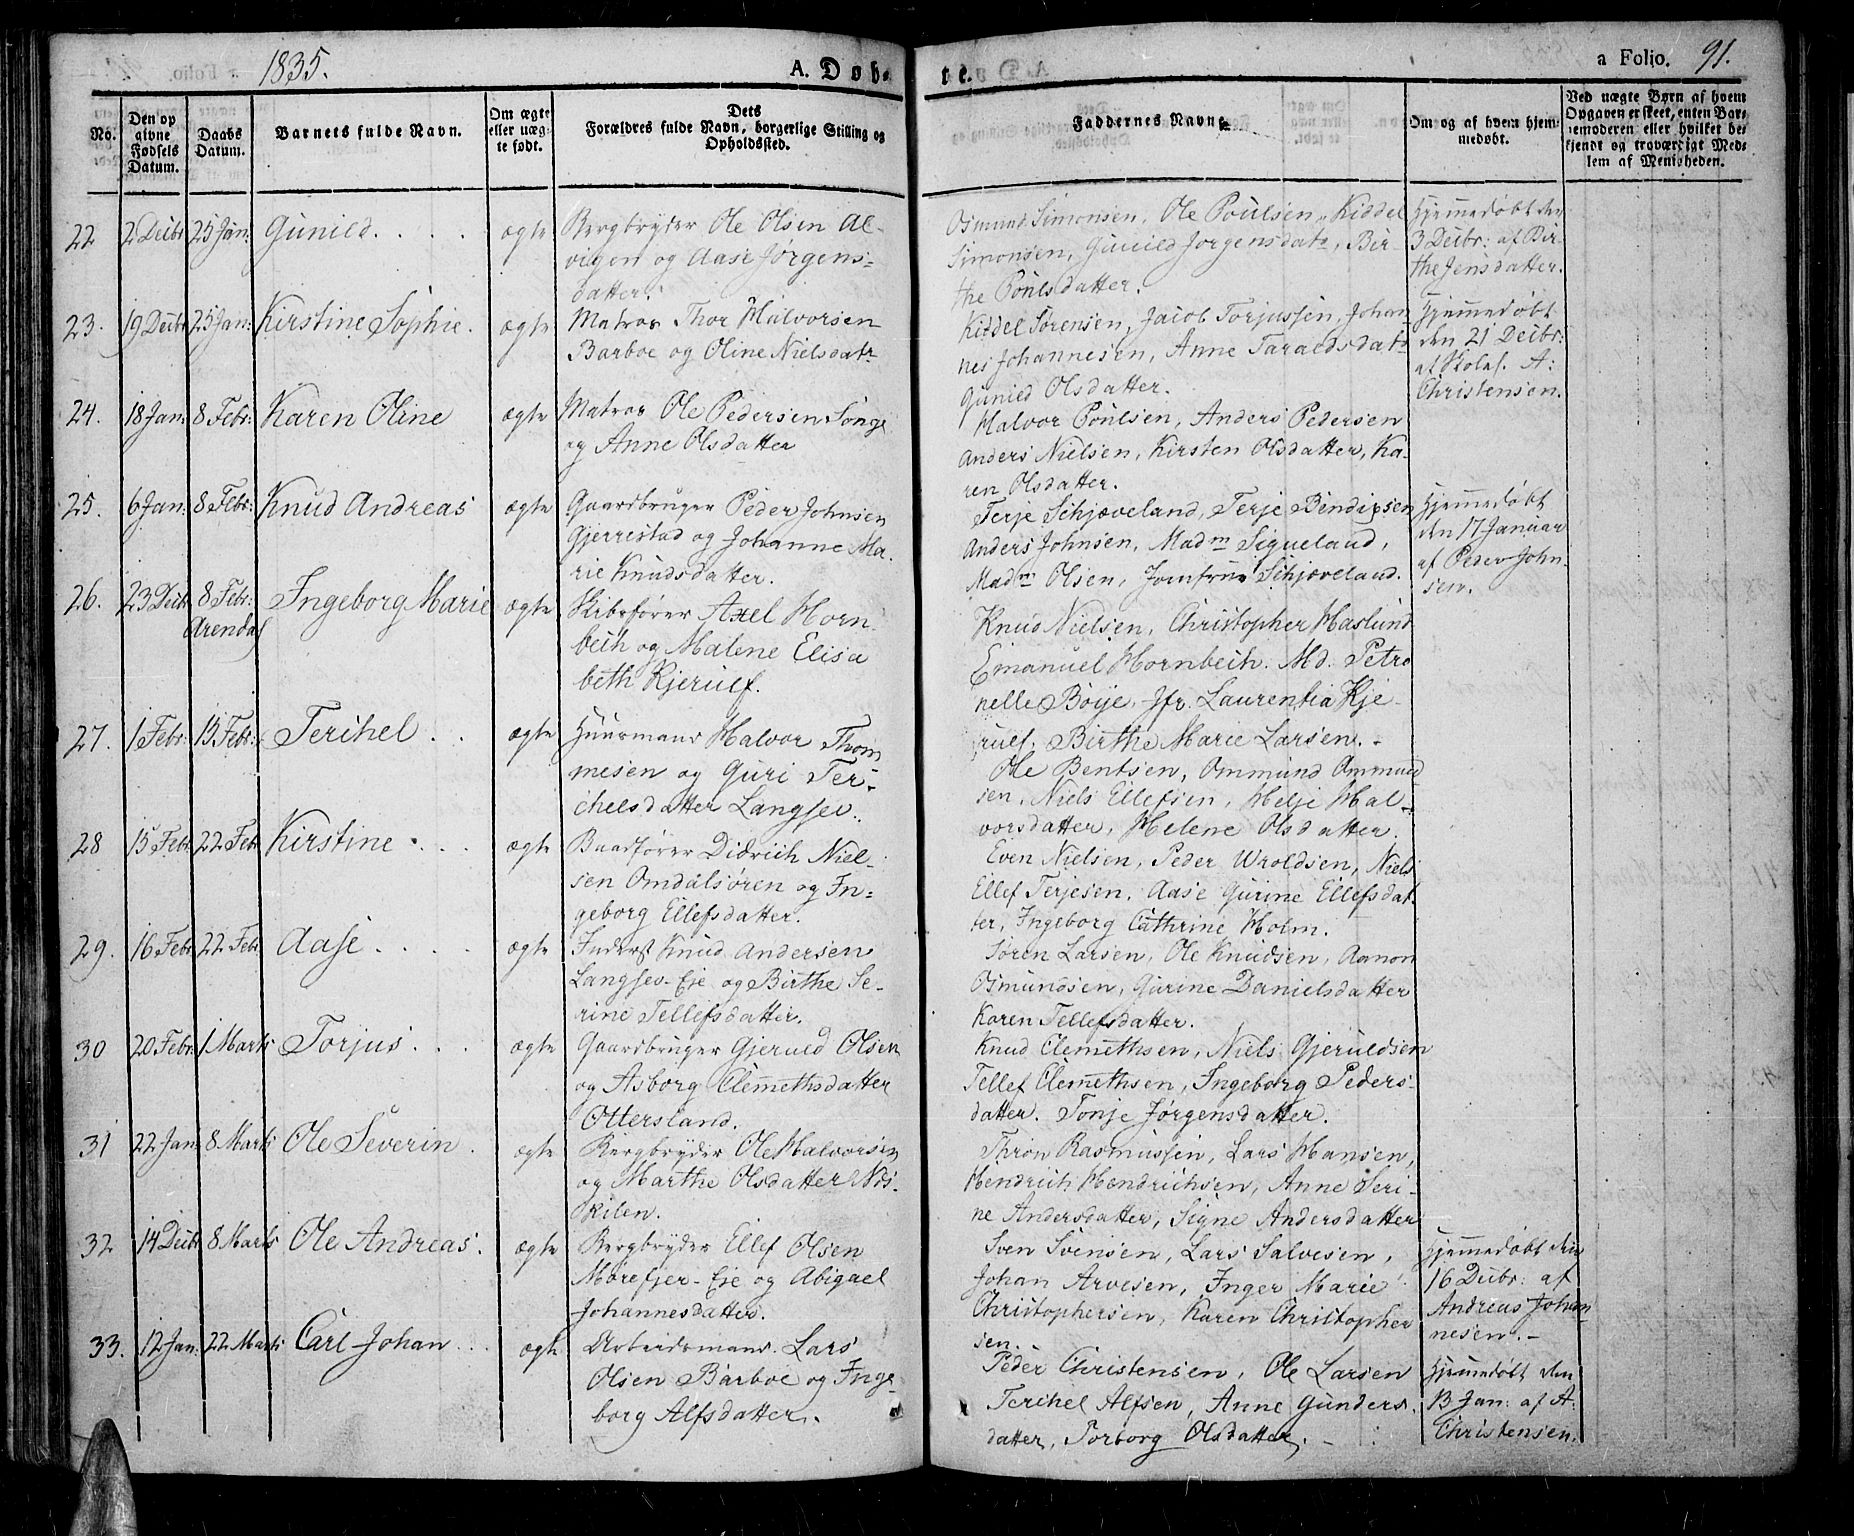 1835.
A. Døb-
te.
a Folio. 91.
No.
Den op
givne
Fødsels
Datum.
Daabs
Datum.
Barnets fulde Navn.
Om ægte
eller uæg-
te født.
Dets
Forældres fulde Navn, borgerlige Stilling og
Opholdssted.
Faddernes Navne
Om og af hvem hjem-
medøbt.
Ved uægte Børn af hvem
Opgaven er skeet, enten Bar-
nemoderen eller hvilket be-
kjendt og troværdigt Med-
lem af Menigheden.
22 2 Decbr 25 Jan: Gunild. ægte Bergbryder Ole Olsen Al-
vigen og Aase Jørgens-
datter.
Osmund Simonsen, Ole Poulsen, Kiddel
Simonsen, Gunild Jørgensdatr, Bir-
the Poulsdatter.
Hjemmedøbt den
3 Decbr: af Bir-
the Jensdatter.
23. 19 Decbr 25 Jan: Kirstine Sophie. ægte Matros Thor Halvorsen
Barboe og Oline Nielsdatr
Kiddel Sørensen, Jacob Torjussen, Johan-
nes Johannesen, Anne Taraldsdatr
Gunild Olsdatter.
Hjemmedøbt
den 21 Decbr:
af Skolal. A:
Christensen.
24. 18 Jan: 8 Febr: Karen Oline ægte Matros Ole Pedersen Songe
og Anne Olsdatter
Halvor Poulsen, Anders Pedersen
Anders Nielsen, Kirsten Olsdatter, Ka-
ren Olsdatter.
25. 6 Jan: 8 Febr: Knud Andreas ægte Gaardbruger Peder Johnsen
Gjerrestad og Johanne Ma-
rie Knudsdatter.
Terje Schjæveland, Terje Bendixsen
Anders Johnsen, Madm Sigueland,
Madm Olsen, Jomfrue Schjæveland.
Hjemmedøbt
den 17 Januar
af Peder John-
sen.
26. 23 Decbr 8 Febr: Arendal Ingeborg Marie ægte Skibsfører Axel Horn-
bech og Malene Elisa
beth Kjerulf.
Knud Nielsen, Christopher Haslund
Emanuel Hornbech. Md. Petro
nelle Boije, Jfr. Laurentia Kje-
rulf, Birthe Marie Larsen. -
27. 1 Febr: 15 Febr: Terchel. ægte Huusmand Halvor Thom
mesen og Guri Ter-
chelsdatter Langsev.
Ole Bentsen, Ommund Ommund
sen, Niels Ellefsen, Helje Hal-
vorsdatter, Helene Olsdatter.
28 15 Febr 22 Febr Kirstine. ægte Baadfører Didrich Niel-
sen Omdalsøren og In-
geborg Ellefsdatter.
Even Nielsen, Peder Wroldsen, Niels
Ellef Terjesen, Aase Gurine Ellefsdat-
ter, Ingeborg Cathrine Holm.
29. 16 Febr 22 Febr Aase. ægte Inderst Knud Andersen
Langsev-Eje og Birthe Se-
rine Tellefsdatter.
Søren Larsen, Ole Knudsen, Aanon
Osmundsen, Gurine Danielsdatter
Karen Tellefsdatter.
30 20 Febr 1 Marts Torjus. ægte Gaardbruger Gjeruld Olsen
og Asborg Clemethsdatter
Ottersland.
Knud Clemethsen, Niels Gjeruldsen
Tellef Clemethsen, Ingeborg Peders-
datter. Tonje Jørgensdatter.
31 22 Jan: 8 Marts Ole Severin. ægte Bergbryder Ole Halvorsen
og Marthe Olsdatter Næs-
kilen.
Thron Rasmussen, Lars Hansen,
Hendrich Hendrichsen, Anne Seri-
ne Andersdatter, Signe Andersdatter
32 14 Decbr 8 Marts Ole Andreas. ægte Bergbryder Ellef Olsen
Mørefjer-Eje og Abigael
Johannesdatter.
Sven Svensen, Lars Salvesen,
Johan Arvesen, Inger Marie
Christophersen, Karen Christopher
sen.
Hjemmedøbt den
16 Decbr: af
Andreas Johan
nesen. -
33. 12 Jan: 22 Marts Carl Johan. ægte Arbeidsmand. Lars
Olsen Barboe og Inge-
borg Alfsdatter.
Peder Christensen, Ole Larsen
Terchel Alfsen, Anne Gunders-
datter, Torborg Olsdatter. -
Hjemmedøbt den
13 Jan: af A:
Christensen.